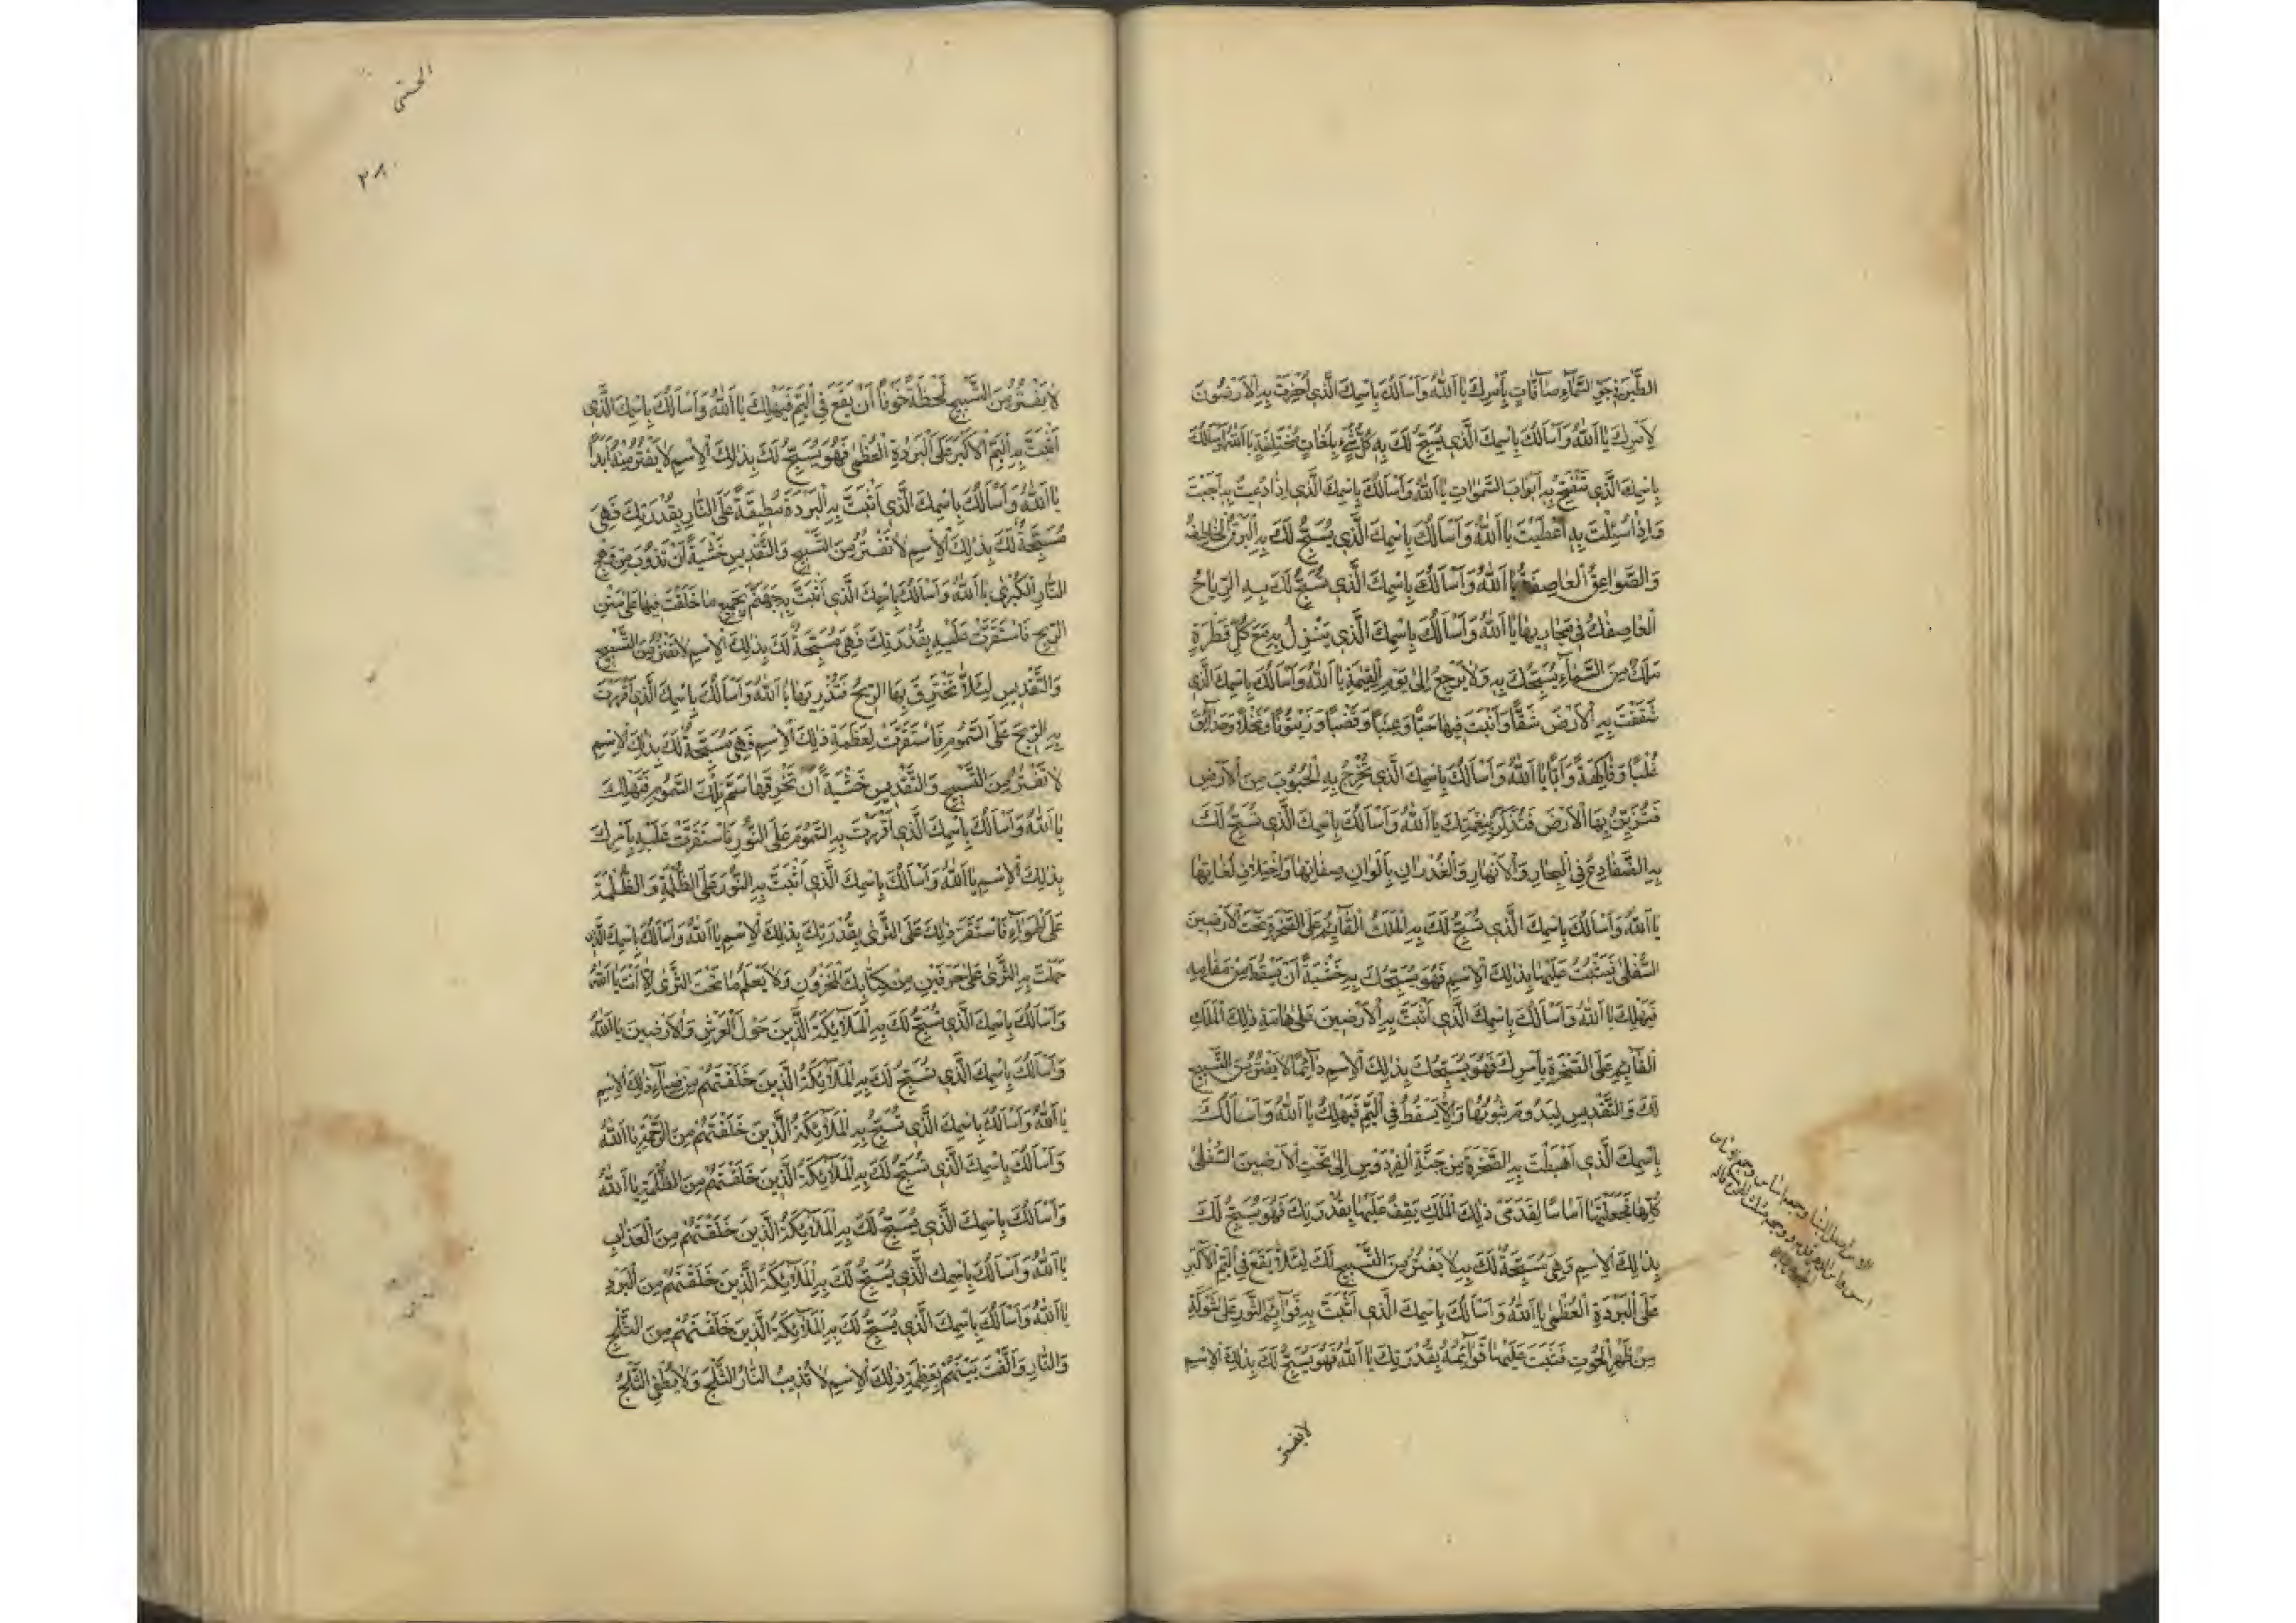 الطَّيْرُ فِي جَوِّ السَّمَاءِ صَافَّاتٍ بِأَمْرِكَ يَا اَللّٰهُ وَأَسْأَلُكَ بِاسْمِكَ الَّذِي اُحْضِرَتْ بِهِ الْأَرَضُونَ
لِأَمْرِكَ يَا اَللّٰهُ وَأَسْأَلُكَ بِاسْمِكَ الَّذِي يُسَبِّحُ لَكَ بِهِ كُلُّ شَيْءٍ بِلُغَاتٍ مُخْتَلِفَةٍ يَا اَللّٰهُ وَأَسْأَلُكَ
بِاسْمِكَ الَّذِي تَنْفَتِحُ بِهِ أَبْوَابُ السَّمٰوَاتِ يَا اَللّٰهُ وَأَسْأَلُكَ بِاسْمِكَ الَّذِي إِذَا دُعِيتَ بِهِ أَجَبْتَ
وَإِذَا سُئِلْتَ بِهِ أَعْطَيْتَ يَا اَللّٰهُ وَأَسْأَلُكَ بِاسْمِكَ الَّذِي يُسَبِّحُ لَكَ بِهِ الْبَرْقُ الْخَاطِفُ
وَالصَّوَاعِقُ الْعَاصِفَةُ يَا اَللّٰهُ وَأَسْأَلُكَ بِاسْمِكَ الَّذِي تُسَبِّحُ لَكَ بِهِ الرِّيَاحُ
الْعَاصِفَاتُ فِي مَجَارِيهَا يَا اَللّٰهُ وَأَسْأَلُكَ بِاسْمِكَ الَّذِي يَنْزِلُ بِهِ مَعَ كُلِّ قَطْرَةٍ
مَلَكٌ مِنَ السَّمَاءِ يُسَبِّحُكَ بِهِ وَلَا يَرْجِعُ إِلَى يَوْمِ الْقِيٰمَةِ يَا اَللّٰهُ وَأَسْأَلُكَ بِاسْمِكَ الَّذِي
شَقَقْتَ بِهِ الْأَرْضَ شَقًّا وَأَنْبَتَّ فِيهَا حَبًّا وَعِنَبًا وَقَضْبًا وَزَيْتُونًا وَنَخْلًا وَحَدَائِقَ
غُلْبًا وَفَاكِهَةً وَأَبًّا يَا اَللّٰهُ وَأَسْأَلُكَ بِاسْمِكَ الَّذِي تُخْرِجُ بِهِ الْحُبُوبَ مِنَ الْأَرْضِ
فَتُزَيِّنُ بِهَا الْأَرْضَ فَتُذَكِّرُ بِنِعْمَتِكَ يَا اَللّٰهُ وَأَسْأَلُكَ بِاسْمِكَ الَّذِي تُسَبِّحُ لَكَ
بِهِ الضَّفَادِعُ فِي الْبِحَارِ وَالْأَنْهَارِ وَالْغُدْرَانِ بِأَلْوَانِ صِفَاتِهَا وَاخْتِلَافِ لُغَاتِهَا
يَا اَللّٰهُ وَأَسْأَلُكَ بِاسْمِكَ الَّذِي يُسَبِّحُ لَكَ بِهِ الْمَلَكُ الْقَائِمُ عَلَى الصَّخْرَةِ تَحْتَ الْأَرَضِينَ
السُّفْلٰى فَيَثْبُتُ عَلَيْهَا بِذٰلِكَ الْاِسْمِ فَهُوَ يُسَبِّحُكَ بِهِ خَشْيَةً أَنْ يَسْقُطَ مِنْ مَقَامِهِ
فَيَهْلِكَ يَا اَللّٰهُ وَأَسْأَلُكَ بِاسْمِكَ الَّذِي أَثْبَتَّ بِهِ الْأَرَضِينَ عَلَى هَامَةِ ذٰلِكَ الْمَلَكِ
الْقَائِمِ عَلَى الصَّخْرَةِ بِأَمْرِكَ فَهُوَ يُسَبِّحُكَ بِذٰلِكَ الْاِسْمِ دَائِمًا لَا يَفْتُرُ مِنَ التَّسْبِيحِ
لَكَ وَالتَّقْدِيسِ لِيَدُومَ ثُبُوتُهَا وَلَا يَسْقُطُ فِي الْيَمِّ فَيَهْلِكُ يَا اَللّٰهُ وَأَسْأَلُكَ
بِاسْمِكَ الَّذِي أَهْبَطْتَ بِهِ الصَّخْرَةَ مِنْ جَنَّةِ الْفِرْدَوْسِ إِلَى تَحْتِ الْأَرَضِينَ السُّفْلٰى
كُلِّهَا فَجَعَلْتَهَا أَسَاسًا لِقَدَمَيْ ذٰلِكَ الْمَلَكِ يَقِفُ عَلَيْهَا بِقُدْرَتِكَ فَهُوَ يُسَبِّحُ لَكَ
بِذٰلِكَ الْاِسْمِ وَهِيَ مُسَبِّحَةٌ لَكَ بِهِ لَا يَفْتُرُ مِنَ التَّسْبِيحِ لَكَ لِئَلَّا يَقَعَ فِي الْيَمِّ الْأَكْبَرِ
عَلَى الْبَرُودَةِ الْعُظْمٰى يَا اَللّٰهُ وَأَسْأَلُكَ بِاسْمِكَ الَّذِي أَثْبَتَّ بِهِ قَوَائِمَ الثَّوْرِ عَلَى شَوْكَةٍ
مِنْ ظَهْرِ الْحُوتِ فَثَبَتَ عَلَيْهَا قَوَائِمُهُ بِقُدْرَتِكَ يَا اَللّٰهُ فَهُوَ يُسَبِّحُ لَكَ بِذٰلِكَ الْاِسْمِ
لا يفتر
الحسنى
٢٨٠
لَا يَفْتُرُ مِنَ التَّسْبِيحِ لَحْظَةً خَوْفًا أَنْ يَقَعَ فِي الْيَمِّ فَيَهْلِكَ يَا اَللّٰهُ وَأَسْأَلُكَ بِاسْمِكَ الَّذِي
أَثْبَتَّ بِهِ الْيَمَّ الْأَكْبَرَ عَلَى الْبَرُودَةِ الْعُظْمٰى فَهُوَ يُسَبِّحُ لَكَ بِذٰلِكَ الْاِسْمِ لَا يَفْتُرُ مِنْهُ أَبَدًا
يَا اَللّٰهُ وَأَسْأَلُكَ بِاسْمِكَ الَّذِي أَثْبَتَّ بِهِ الْبَرُودَةَ مُطِيقَةً عَلَى النَّارِ بِقُدْرَتِكَ فَهِيَ
مُسَبِّحَةٌ لَكَ بِذٰلِكَ الْاِسْمِ لَا تَفْتُرُ مِنَ التَّسْبِيحِ وَالتَّقْدِيسِ خَشْيَةً أَنْ تَذُوبَ مِنْ وَهَجِ
النَّارِ الْكُبْرٰى يَا اَللّٰهُ وَأَسْأَلُكَ بِاسْمِكَ الَّذِي أَثْبَتَّ بِهِ جَهَنَّمَ بِجَمِيعِ مَا خَلَقْتَ فِيهَا عَلَى مَتْنِ
الرِّيحِ فَاسْتَقَرَّتْ عَلَيْهِ بِقُدْرَتِكَ فَهِيَ مُسَبِّحَةٌ لَكَ بِذٰلِكَ الْاِسْمِ لَا تَفْتُرُ مِنَ التَّسْبِيحِ
وَالتَّقْدِيسِ لِئَلَّا تَخْتَرِقَ بِهَا الرِّيحُ فَتُذْرِيَهَا يَا اَللّٰهُ وَأَسْأَلُكَ بِاسْمِكَ الَّذِي أَقْرَرْتَ
بِهِ الرِّيحَ عَلَى السَّمُومِ فَاسْتَقَرَّتْ لِعَظَمَةِ ذٰلِكَ الْاِسْمِ فَهِيَ مُسَبِّحَةٌ لَكَ بِذٰلِكَ الْاِسْمِ
لَا تَفْتُرُ مِنَ التَّسْبِيحِ وَالتَّقْدِيسِ خَشْيَةً أَنْ تُحْرِقَهَا سَمُّ تِلْكَ السَّمُومِ فَتَهْلِكَ
يَا اَللّٰهُ وَأَسْأَلُكَ بِاسْمِكَ الَّذِي أَقْرَرْتَ بِهِ السَّمُومَ عَلَى النُّورِ فَاسْتَقَرَّتْ عَلَيْهِ بِأَمْرِكَ
بِذٰلِكَ الْاِسْمِ يَا اَللّٰهُ وَأَسْأَلُكَ بِاسْمِكَ الَّذِي أَثْبَتَّ بِهِ النُّورَ عَلَى الظُّلْمَةِ وَالظُّلْمَةَ
عَلَى الْهَوَاءِ فَاسْتَقَرَّ ذٰلِكَ عَلَى الثَّرٰى بِقُدْرَتِكَ بِذٰلِكَ الْاِسْمِ يَا اَللّٰهُ وَأَسْأَلُكَ بِاسْمِكَ الَّذِي
حَمَلْتَ بِهِ الثَّرٰى عَلَى حَرْفَيْنِ مِنْ كِتَابِكَ الْمَخْزُونِ وَلَا يَعْلَمُ مَا تَحْتَ الثَّرٰى إِلَّا أَنْتَ يَا اَللّٰهُ
وَأَسْأَلُكَ بِاسْمِكَ الَّذِي تُسَبِّحُ لَكَ بِهِ الْمَلَائِكَةُ الَّذِينَ حَوْلَ الْعَرْشِ وَالْأَرَضِينَ يَا اَللّٰهُ
وَأَسْأَلُكَ بِاسْمِكَ الَّذِي تُسَبِّحُ لَكَ بِهِ الْمَلَائِكَةُ الَّذِينَ خَلَقْتَهُمْ مِنْ ضِيَاءِ ذٰلِكَ الْاِسْمِ
يَا اَللّٰهُ وَأَسْأَلُكَ بِاسْمِكَ الَّذِي تُسَبِّحُ بِهِ الْمَلَائِكَةُ الَّذِينَ خَلَقْتَهُمْ مِنَ الرَّحْمَةِ يَا اَللّٰهُ
وَأَسْأَلُكَ بِاسْمِكَ الَّذِي تُسَبِّحُ لَكَ بِهِ الْمَلَائِكَةُ الَّذِينَ خَلَقْتَهُمْ مِنَ الظُّلْمَةِ يَا اَللّٰهُ
وَأَسْأَلُكَ بِاسْمِكَ الَّذِي يُسَبِّحُ لَكَ بِهِ الْمَلَائِكَةُ الَّذِينَ خَلَقْتَهُمْ مِنَ الْعَذَابِ
يَا اَللّٰهُ وَأَسْأَلُكَ بِاسْمِكَ الَّذِي يُسَبِّحُ لَكَ بِهِ الْمَلَائِكَةُ الَّذِينَ خَلَقْتَهُمْ مِنَ الْبَرَدِ
يَا اَللّٰهُ وَأَسْأَلُكَ بِاسْمِكَ الَّذِي يُسَبِّحُ لَكَ بِهِ الْمَلَائِكَةُ الَّذِينَ خَلَقْتَهُمْ مِنَ الثَّلْجِ
وَالنَّارِ وَأَلَّفْتَ بَيْنَهُمْ بِعَظَمَةِ ذٰلِكَ الْاِسْمِ لَا تُذِيبُ النَّارُ الثَّلْجَ وَلَا يُطْفِئُ الثَّلْجُ